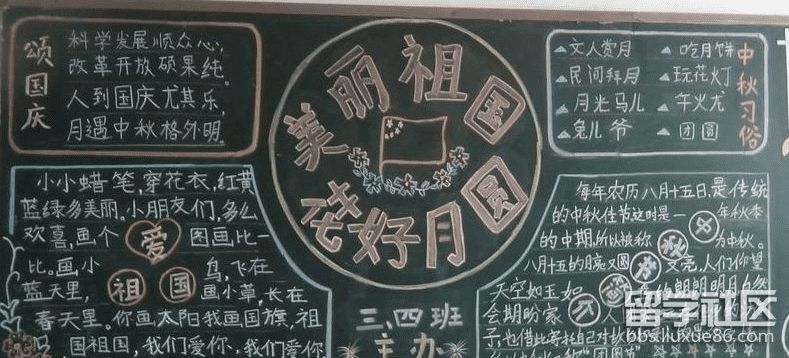 颂国庆
科学发展顺众心,
改革开放硕果纯。
人到国庆尤其乐,
月遇中秋格外明。
美丽祖国
花好月圆
三、四班
主办
中秋习俗
文人赏月
吃月饼
民间拜月
玩花灯
月光马儿
午火龙
兔儿爷
团圆
小小蜡笔,穿花衣,红黄
蓝绿多美丽。小朋友们,多么
欢喜,画个 图画比一
比。画小 鸟,飞在
蓝天里, 画小草,长在
春天里。你画太阳我画国旗,祖
国祖国,我们爱你,我们爱你
爱
祖国
每年农历八月十五日是传统
的中秋佳节这时是一 年秋季
的中期,所以被称 为中秋。
八月十五的月亮又圆 又亮,人们仰望
天空如玉如 的朗朗明月
会期盼家 人
子,也借此寄托自己对故
中秋
留学社区
bbs.liuxue86.com